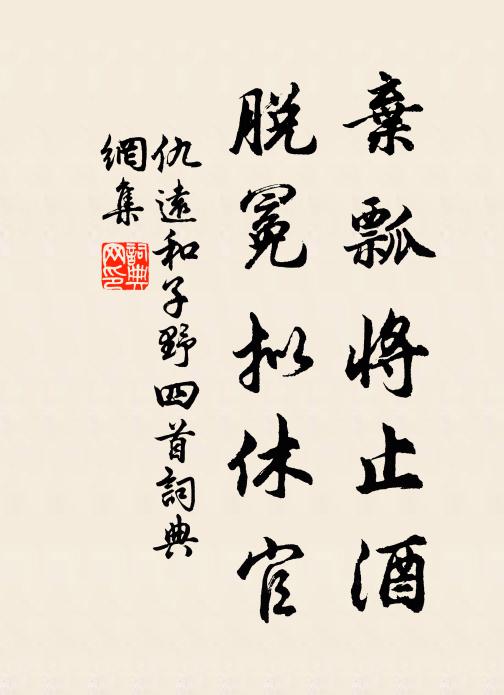 棄瓢將止酒
脫冕擬休官
仇遠和子野四首詞典
網集
詞典網印